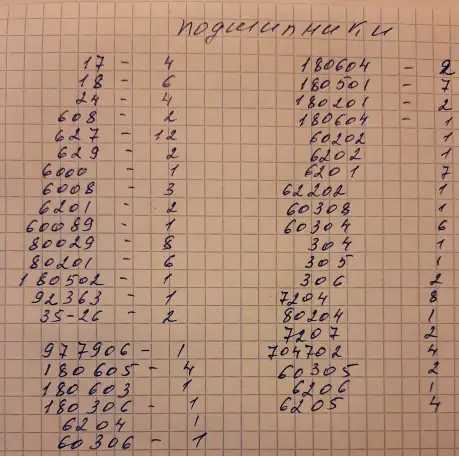 подшипники
17 - 4
18 - 6
24 - 4
608 - 2
627 - 12
629 - 2
6000 - 1
6008 - 3
6201 - 2
60089 - 1
80029 - 8
80201 - 6
180502 - 1
92363 - 1
35-26 - 2
977906 - 1
180605 - 4
180603 1
180306 - 1
6204 1
60306 - 1
180604 - 2
180501 - 7
180201 - 2
180604 - 1
60202 1
6202 1
6201 7
62202 1
60308 1
60304 6
304 1
305 1
306 2
7204 8
80204 1
7207 2
704702 4
60305 2
6206 1
6205 4